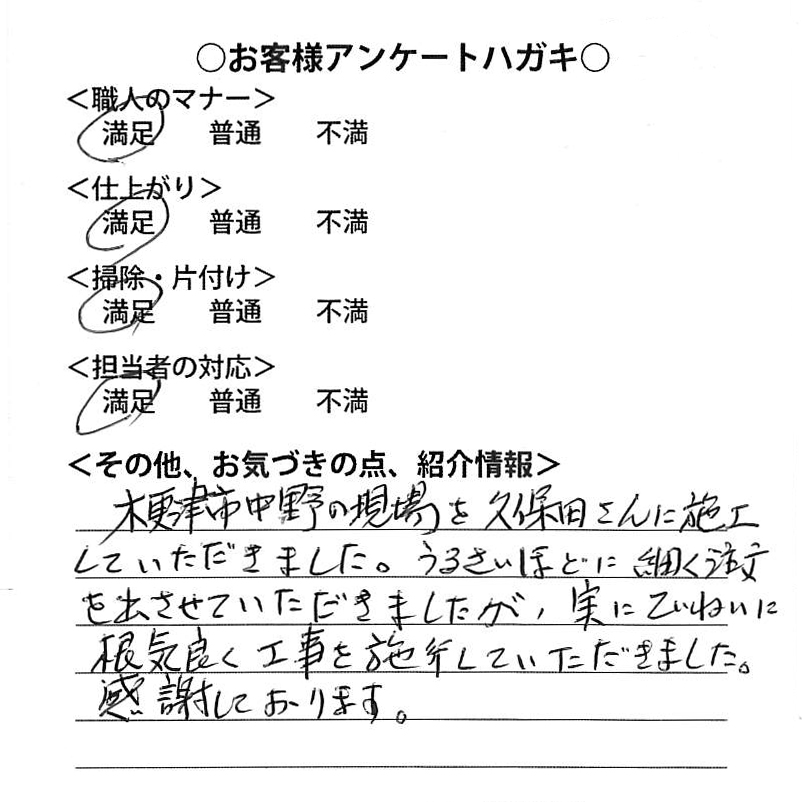 ○お客様アンケートハガキ○
＜職人のマナー＞
満足 普通 不満
＜仕上がり＞
満足 普通 不満
＜掃除・片付け＞
満足 普通 不満
＜担当者の対応＞
満足 普通 不満
＜その他、お気づきの点、紹介情報＞
木更津市中野の現場を久保田さんに施工
していただきました。うるさいほどに細く注文
を出させていただきましたが、実にていねいに
根気良く工事を施行していただきました。
感謝しております。